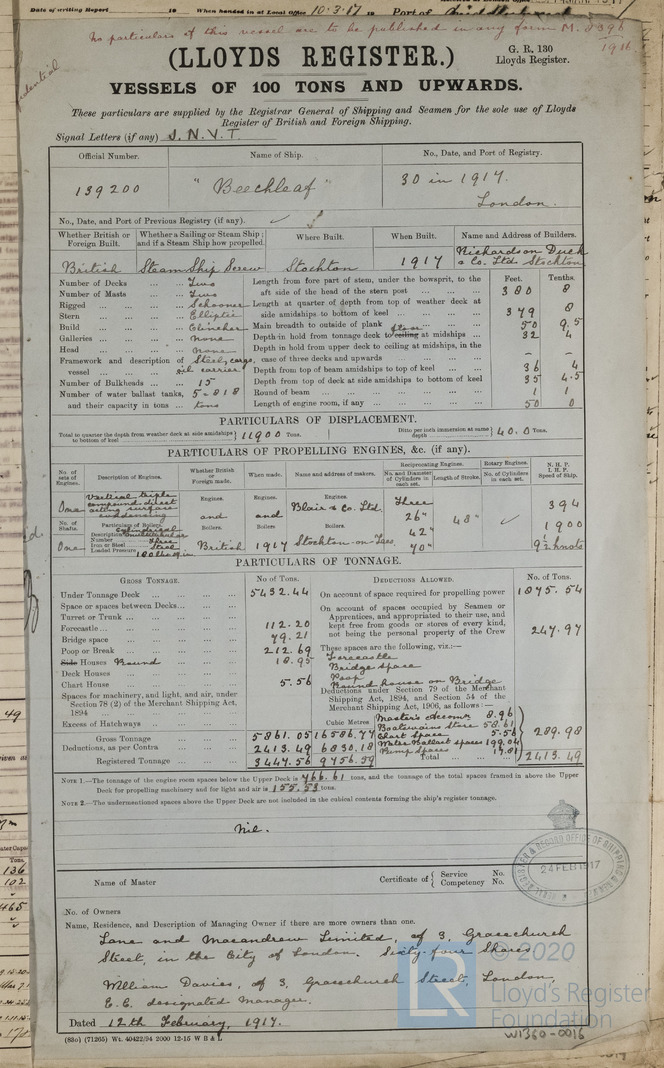 Date of writing Report 19 When handed in at Local Office 10.3.17 19 Port of
No particulars of this vessel are to be published in any form M. 8396
1916
(LLOYDS REGISTER.)
G. R. 130
Lloyds Register.
VESSELS OF 100 TONS AND UPWARDS.
These particulars are supplied by the Registrar General of Shipping and Seamen for the sole use of Lloyds
Register of British and Foreign Shipping.
Signal Letters (if any) J.N.V.T.
Official Number. Name of Ship. No., Date, and Port of Registry.
139200 "Beechleaf" 30 in 1917.
London.
No., Date, and Port of Previous Registry (if any).
Whether British or Foreign Built. Whether a Sailing or Steam Ship; and if a Steam Ship how propelled. Where Built. When Built. Name and Address of Builders.
British Steam Ship Screw Stockton 1917 Richardson Duck & Co. Ltd Stockton
Number of Decks Two
Number of Masts Two
Rigged Schooner
Stern Elliptic
Build Clincher
Galleries none
Head none
Framework and description of vessel Steel, cargo, oil carrier
Number of Bulkheads 15
Number of water ballast tanks, and their capacity in tons 5 - 818 tons
Feet. Tenths.
Length from fore part of stem, under the bowsprit, to the aft side of the head of the stern post 380 8
Length at quarter of depth from top of weather deck at side amidships to bottom of keel 379 8
Main breadth to outside of plank 50 9.5
Depth in hold from tonnage deck to ceiling at midships 32 4
Depth in hold from upper deck to ceiling at midships, in the case of three decks and upwards - -
Depth from top of beam amidships to top of keel 36 4
Depth from top of deck at side amidships to bottom of keel 35 4.5
Round of beam 1 1
Length of engine room, if any 50 0
PARTICULARS OF DISPLACEMENT.
Total to quarter the depth from weather deck at side amidships to bottom of keel 11900 Tons. Ditto per inch immersion at same depth 40.0 Tons.
PARTICULARS OF PROPELLING ENGINES, &c. (if any).
No. of sets of Engines. Description of Engines. Whether British or Foreign made. When made. Name and address of makers. Reciprocating Engines. Rotary Engines. N. H. P. I. H. P. Speed of Ship.
No. and Diameter of Cylinders in each set. Length of Stroke. No. of Cylinders in each set.
One Vertical triple compound direct acting surface condensing
Engines. and Boilers. British
Engines. and Boilers. 1917
Engines. Blair & Co. Ltd. Boilers. Stockton-on-Tees
Three 26" 42" 70" 48"
394
1900
9½ knots
No. of Shafts. One
Particulars of Boilers.
Description Cylindrical
Number Three
Iron or Steel Steel
Loaded Pressure 180 lbs
PARTICULARS OF TONNAGE.
GROSS TONNAGE. No of Tons. DEDUCTIONS ALLOWED. No. of Tons.
Under Tonnage Deck 5432.44
Space or spaces between Decks
Turret or Trunk
Forecastle 112.20
Bridge space 79.21
Poop or Break 212.69
Side Houses Round 18.95
Deck Houses
Chart House 5.56
Spaces for machinery, and light, and air, under Section 78 (2) of the Merchant Shipping Act, 1894
Excess of Hatchways
Cubic Metres
Gross Tonnage 5861.05 16586.77
Deductions, as per Contra 2413.49 6830.18
Registered Tonnage 3447.56 9756.59
On account of space required for propelling power 1875.54
On account of spaces occupied by Seamen or Apprentices, and appropriated to their use, and kept free from goods or stores of every kind, not being the personal property of the Crew 247.97
These spaces are the following, viz.:—
Forecastle
Bridge space
Poop
Round house on Bridge
Deductions under Section 79 of the Merchant Shipping Act, 1894, and Section 54 of the Merchant Shipping Act, 1906, as follows:—
Master's Accom. 8.96
Boatswains Store 58.61
Chart Space 5.56
Water Ballast spaces 199.04
Pump Spaces 17.81
289.98
Total 2413.49
NOTE 1.—The tonnage of the engine room spaces below the Upper Deck is 466.61 tons, and the tonnage of the total spaces framed in above the Upper
Deck for propelling machinery and for light and air is 155.53 tons.
NOTE 2.—The undermentioned spaces above the Upper Deck are not included in the cubical contents forming the ship's register tonnage.
Nil.
24 FEB 1917
Name of Master Certificate of { Service No. Competency No.
No. of Owners
Name, Residence, and Description of Managing Owner if there are more owners than one.
Lane and Macandrew Limited, of 3, Gracechurch
Street, in the City of London. Sixty-four Shares
William Davies, of 3, Gracechurch Street, London,
E.C. designated manager.
Dated 12th February, 1917.
(83o) (71265) Wt. 40422/94 2000 12-15 W B & L
© 2020
LR
Lloyd's Register
Foundation
W1360-0016